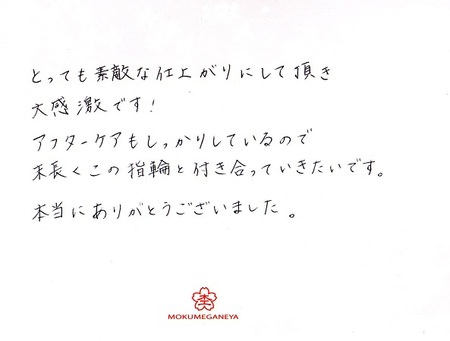 とっても素敵な仕上がりにして頂き
大感激です!
アフターケアもしっかりしているので
末長くこの指輪と付き合っていきたいです。
本当にありがとうございました。
MOKUMEGANEYA